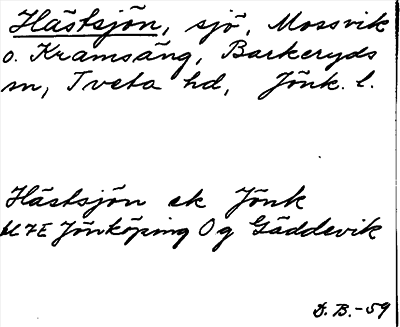 Hästsjön, sjö, Mossvik
o. Kramsäng, Barkeryds
sn, Tveta hd, Jönk. l.
Hästsjön ek Jönk
7E Jönköping Og Gäddevik
D. B. -59